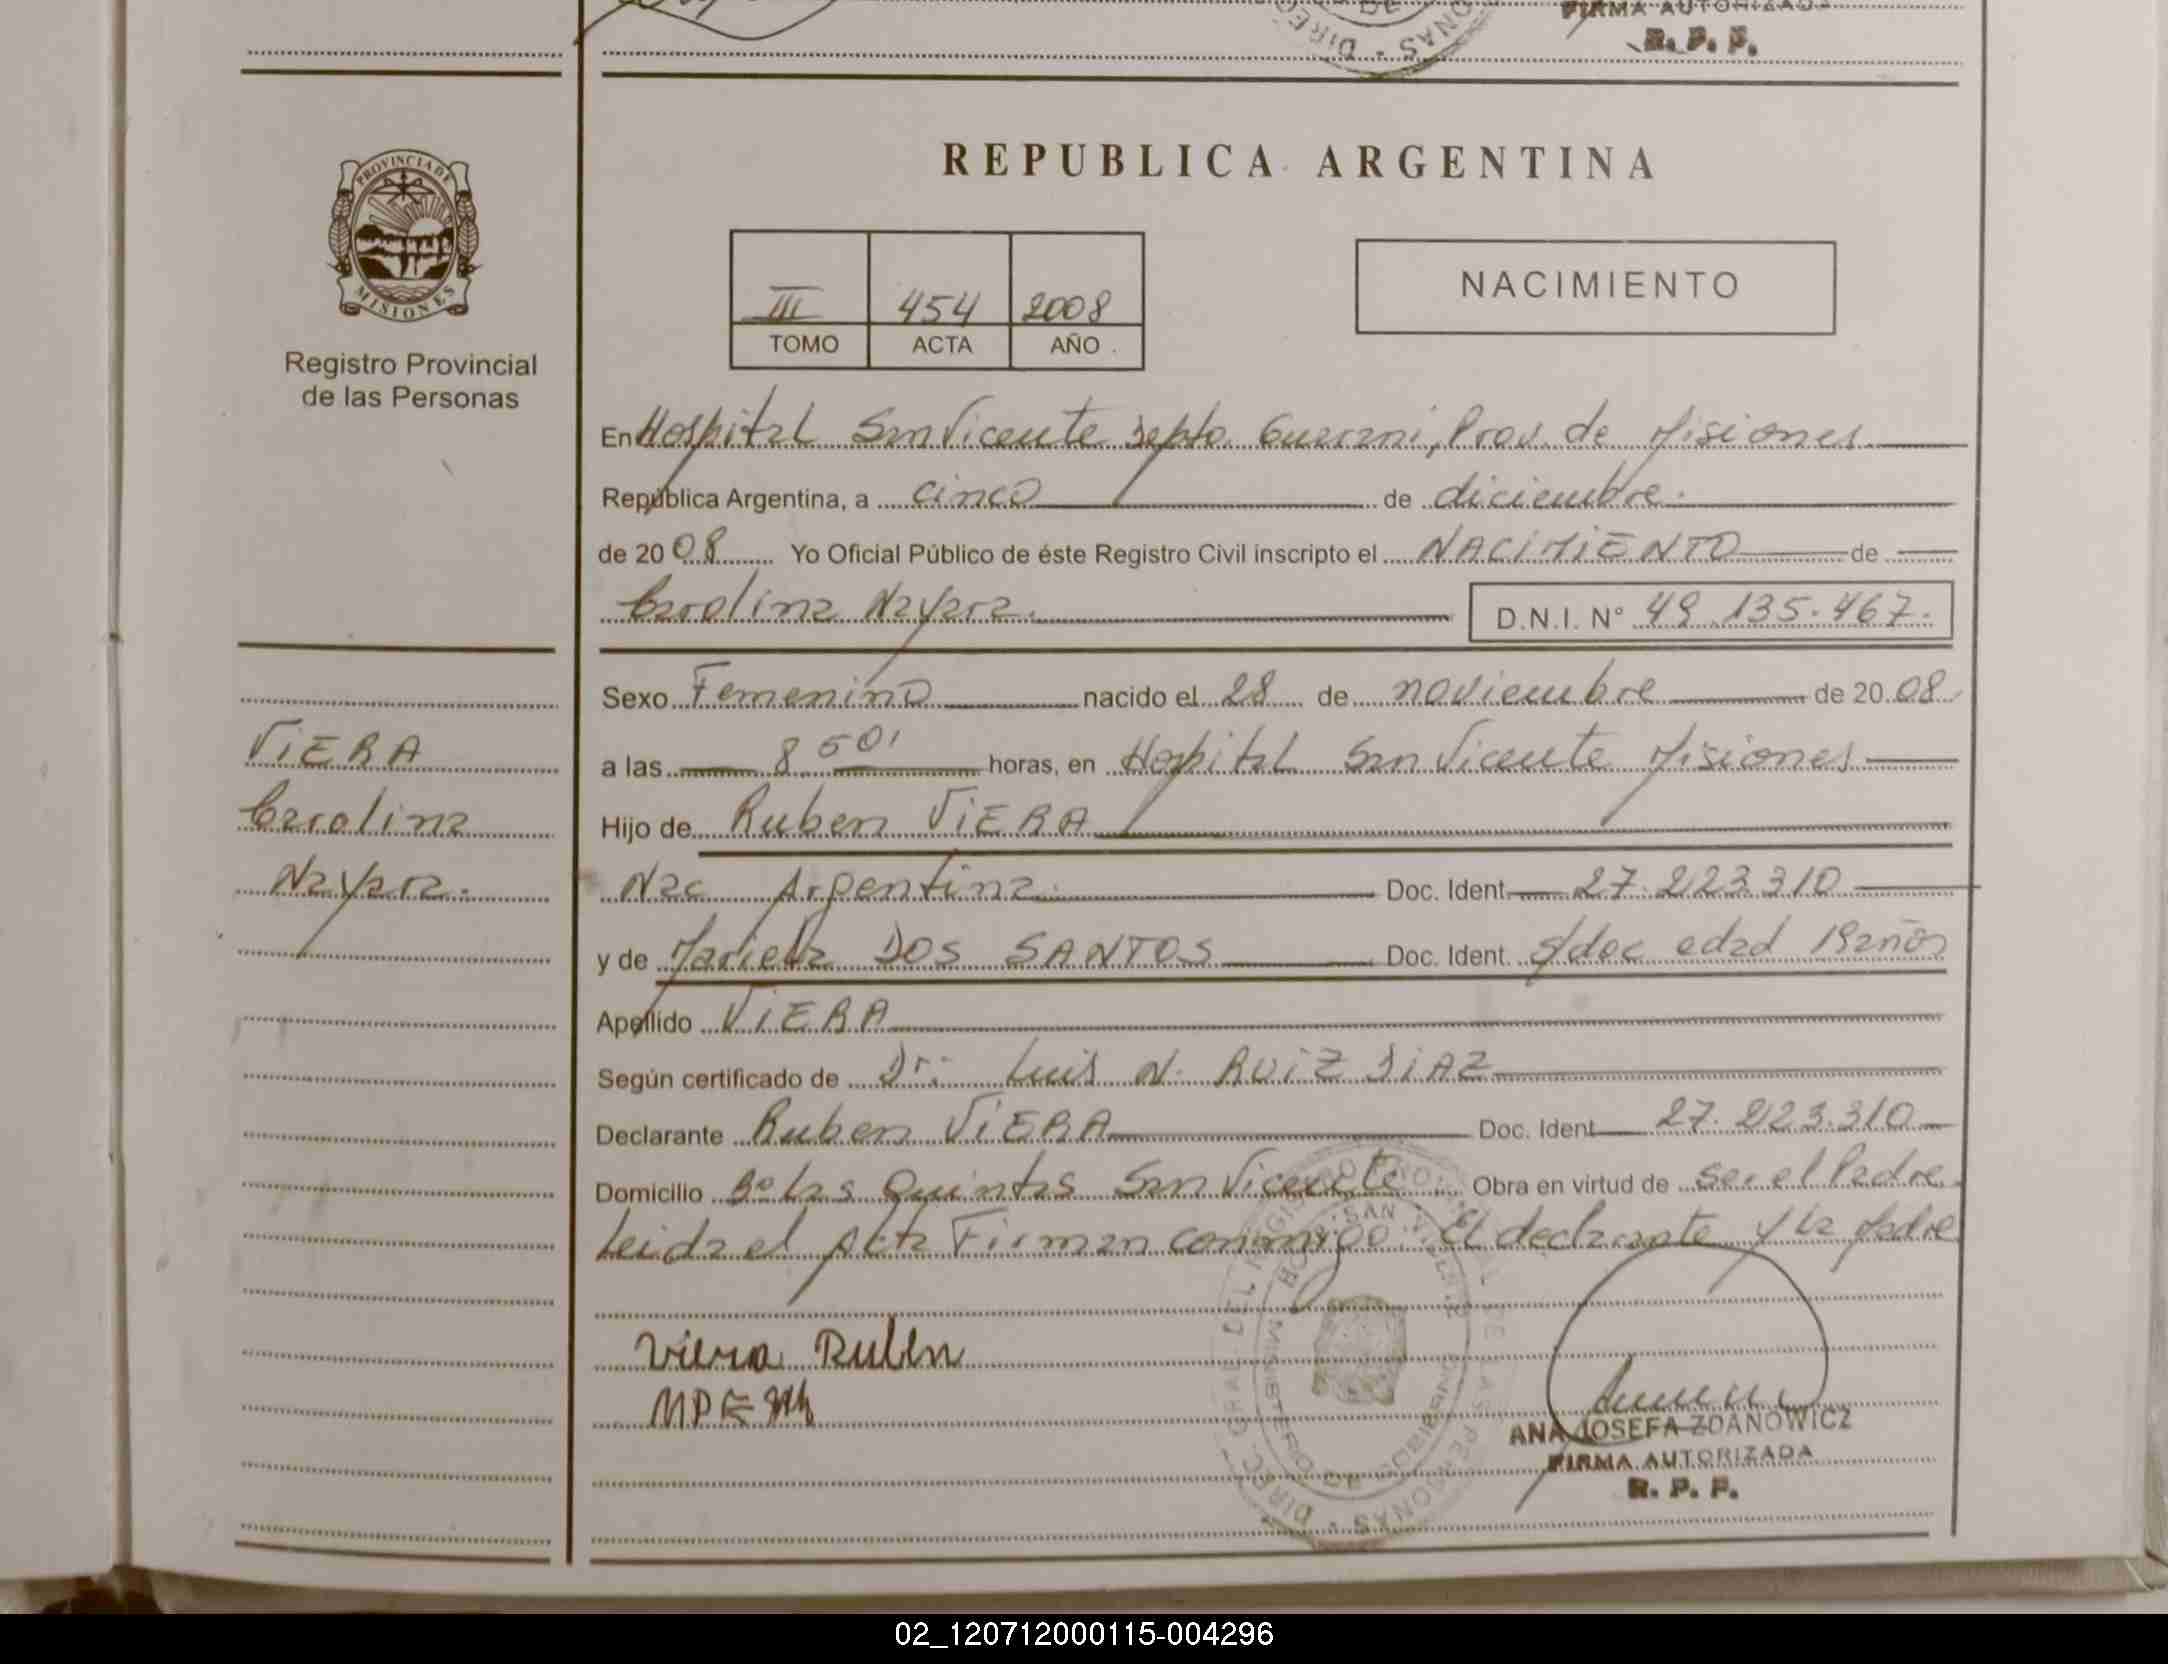 FIRMA AUTORIZADA
R. P. P.
PROVINCIA DE
MISIONES
Registro Provincial
de las Personas
REPUBLICA ARGENTINA
III 454 2008
TOMO ACTA AÑO
NACIMIENTO
En Hospital San Vicente Depto Guarani, Prov. de Misiones
República Argentina, a cinco de diciembre.
de 2008 Yo Oficial Público de éste Registro Civil inscripto el NACIMIENTO de
Carolina Nayara. D.N.I. N° 49.135.467.
Sexo Femenino nacido el 28 de noviembre de 2008
VIERA
a las 8 50' horas, en Hospital San Vicente Misiones
Carolina
Hijo de Ruben VIERA
Nayara.
Nac Argentina. Doc. Ident 27.223.310
y de Mariela DOS SANTOS Doc. Ident. s/doc edad 19 años
Apellido VIERA
Según certificado de Dr: Luis N. RUIZ DIAZ
Declarante Ruben VIERA Doc. Ident 27.223.310
Domicilio Bº Las Quintas San Vicente Obra en virtud de ser el Padre.
Leida el Acta Firman conmigo El declarante y la Madre
Viera Ruben
ANA JOSEFA ZDANOWICZ
FIRMA AUTORIZADA
R. P. P.
02_120712000115-004296